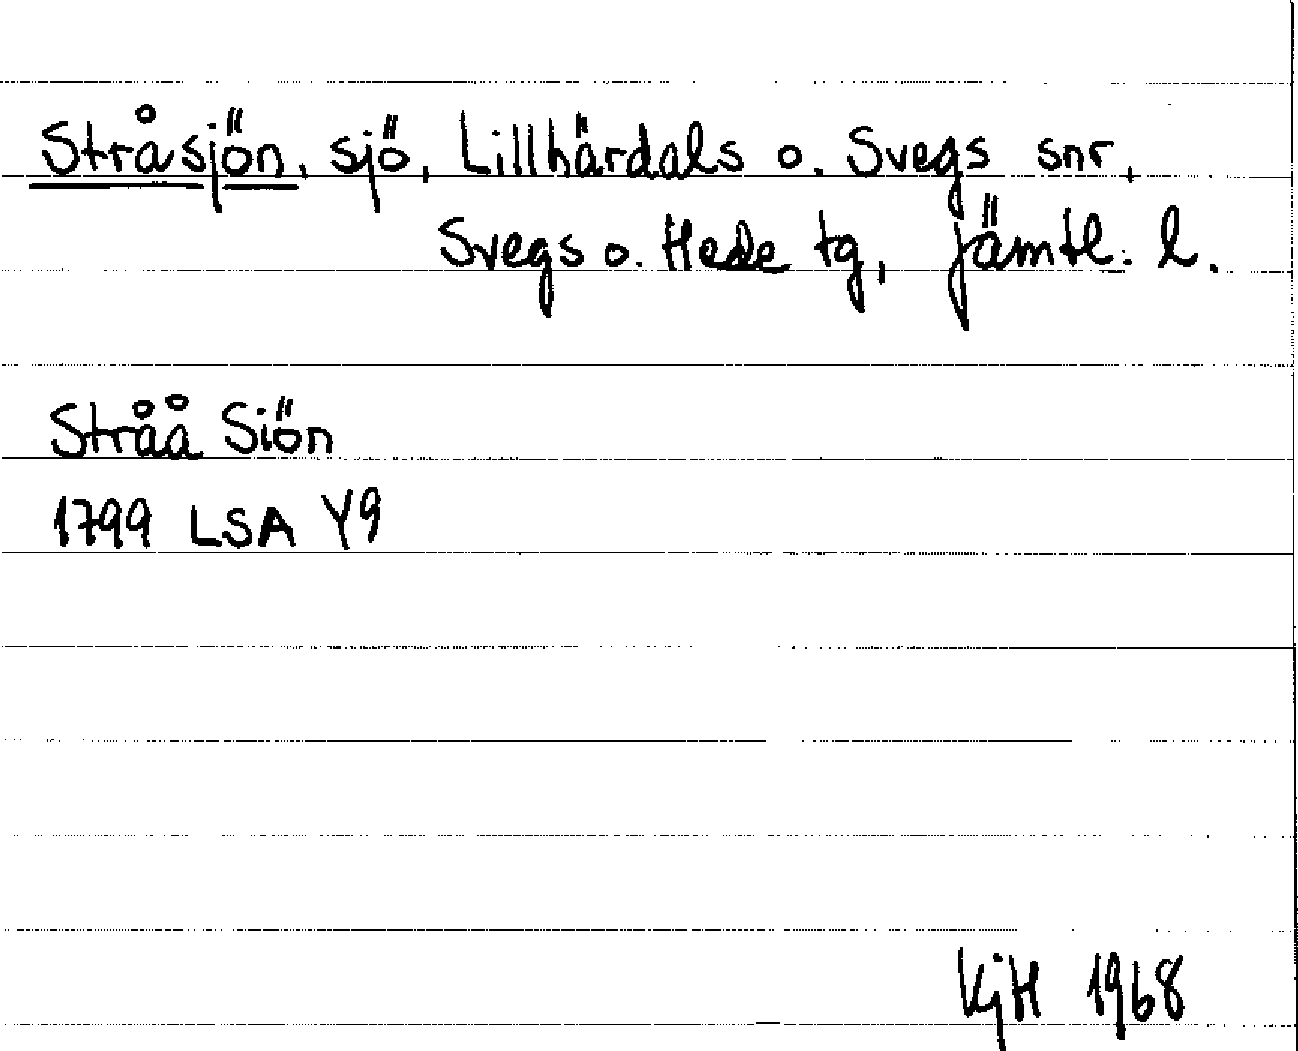 Stråsjön, sjö, Lillhärdals o. Svegs snr,
Svegs o. Hede tg, Jämtl. l.
Stråå Siön
1799 LSA Y9
KjH 1968